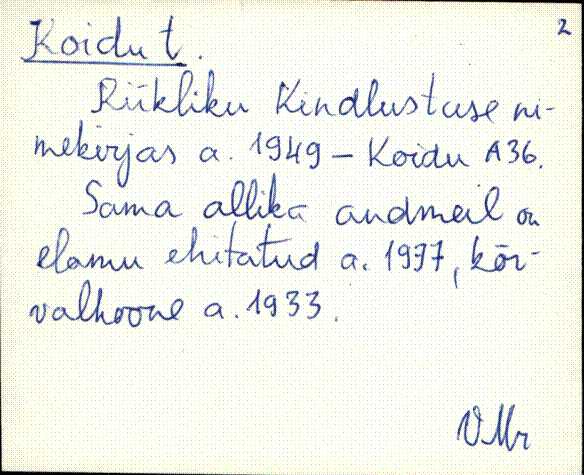 2
Koidu t.
Riikliku Kindlustuse ni-
mekirjas a. 1949 – Koidu A36.
Sama allika andmeil on
elamu ehitatud a. 1937, kõr-
valhoone a. 1933.
VMr